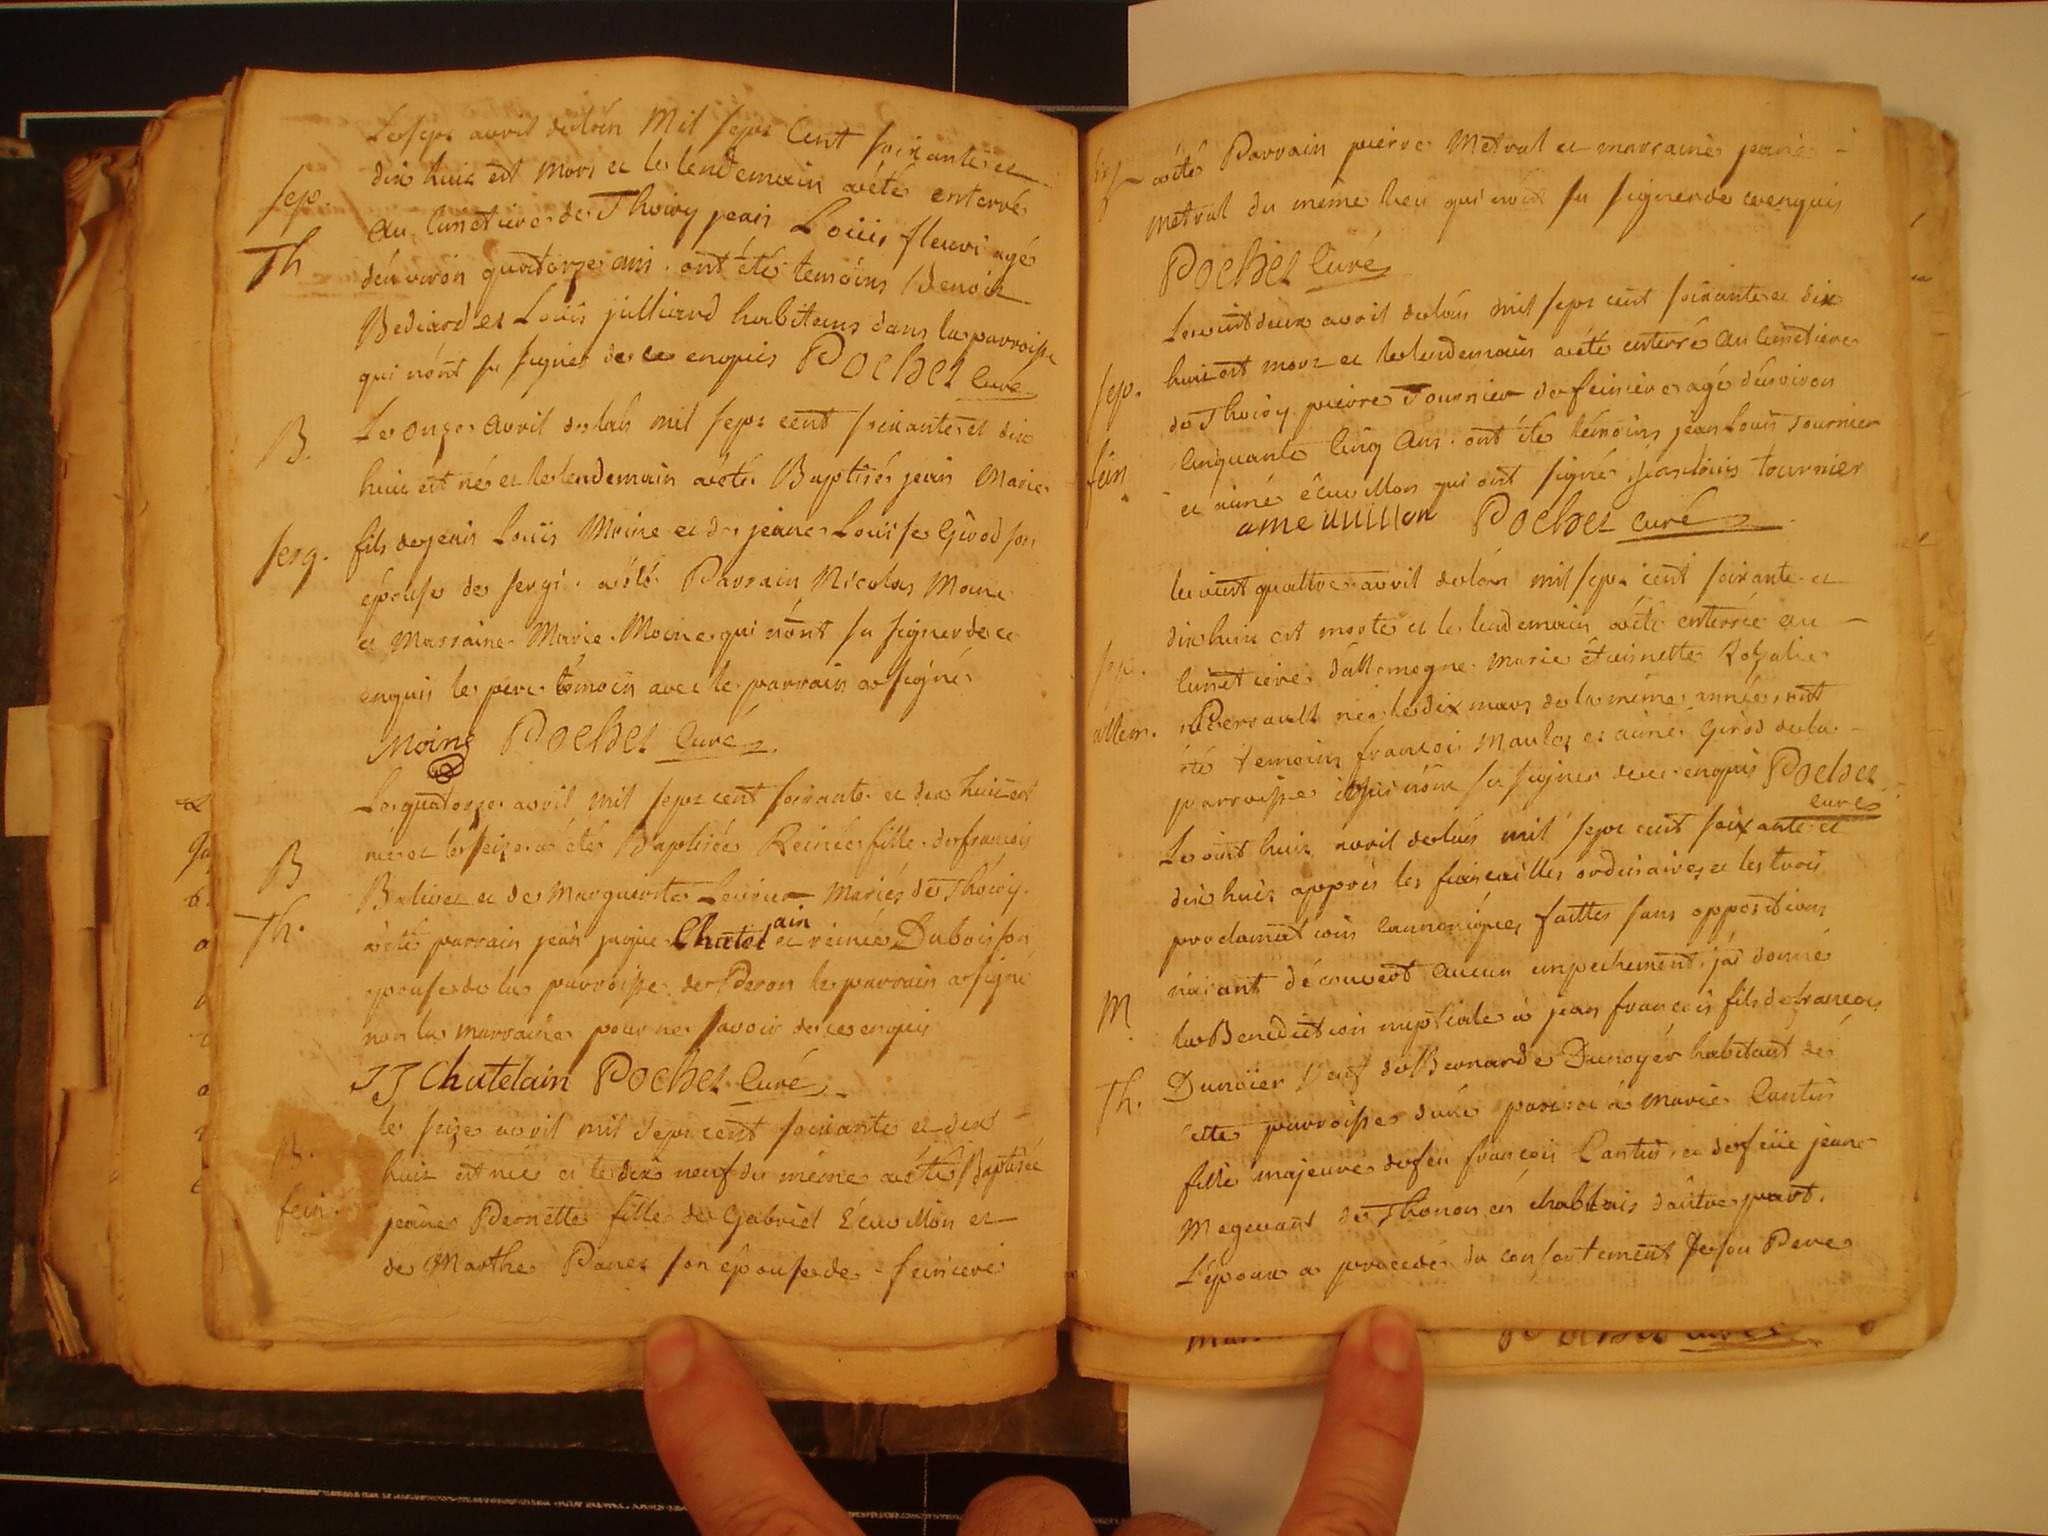 Le sept avril de l'an mil sept cent soixante et
dix huit est mort et le lendemain a été enterré
sep.
au cimetiere de Thoiry jean Loüis fleuri agé
Th
d'environ quatorze ans. ont été temoins Benoit
Bediard et Loüis julliard habitans dans la parroisse
qui n'ont su signer de ce enquis Pochet curé
B.
Le onze avril de l'an mil sept cent soixante et dix
huit est né et le lendemain a été Baptisé jean Marie
serg.
fils de jean Loüis Moine et de jeane Louise Girod son
épouse de sergi. a été Parrain Nicolas Moine
et Marraine Marie Moine qui n'ont su signer de ce
enquis le pere temoin avec le parrain a signé
Moine Pochet curé
Le quatorze avril mil sept cent soixante et dix huit est
née et le seize a été Baptisée Reinée fille de françois
B
Balivet et de Marguerite mariés de Thoiry.
Th.
a été parrain jean jaque Chatelain et reinée Dubois son
epouse de la parroisse de Peron le parrain a signé
non la marraine pour ne savoir de ce enquis
JJ Chatelain Pochet curé
le seize avril mil sept cent soixante et dix
B.
huit est née et le dix neuf du même a été Baptisée
fein.
jeane Pernette fille de Gabriel Ecuvillon et
de Marthe Panet son épouse de feiniere
a été Parrain pierre Metral et marraine
Metral du même lieu qui n'ont su signer de ce enquis
Pochet curé
Le vint deux avril de l'an mil sept cent soixante et dix
huit est mort et le lendemain a été enterré au cimetiere
sep.
de Thoiry pierre Tournier de feiniere agé d'environ
cinquante cinq ans. ont été témoins jean Louis Tournier
fein
et aimé écuvillon qui ont signé. jean louis tournier
Pochet curé
le vint quattre avril de l'an mil sept cent soixante et
dix huit est morte et le lendemain a été enterrée au
sep.
cimetiere d'allemogne marie étiennette Rozalie
allem.
Perrault née le dix mars de la même année ont
été temoins françois et aimé Girod de la
parroisse qui n'ont su signer de ce enquis Pochet
curé
Le vint huit avril de l'an mil sept cent soixante et
dix huit apprès les fiancailles ordinaires et les trois
proclamations canoniques faittes sans oppositions
n'aiant découvert aucun empechement j'ai donné
M
la Benediction nuptiale à jean françois fils de françois
Th.
Dunoïer veuf de Bernarde Dunoyer habitant de
cette parroisse d'une part et à marie Cantin
fille majeure de feu françois Cantin et de feüe jeane
Megevant de Thonon en chablais d'autre part.
L'époux a procedé du consentement de son Pere